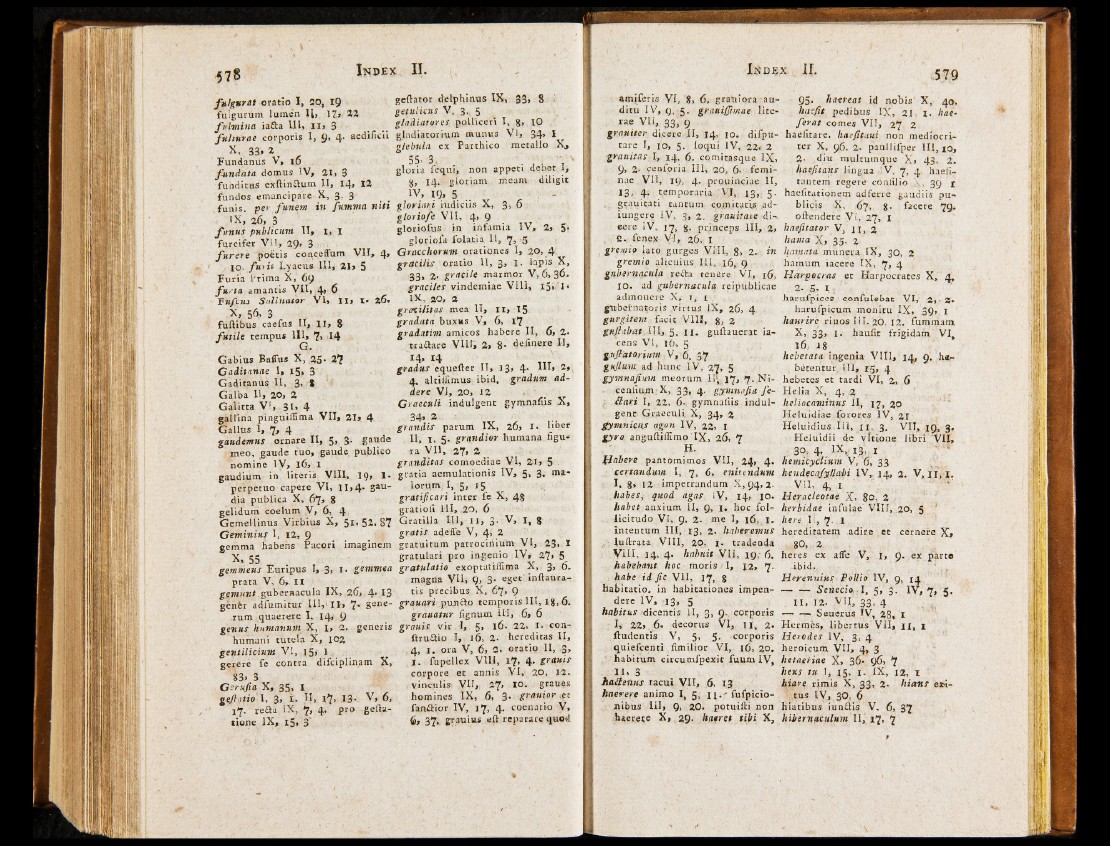 578 INDEX II.
fulgurat oratio I, 20, 19
fulgurum lumen II, 17, 22
fulmina iacta III, 11, 3
fulturae corporis I, 9, 4. aedificii
X, 33, 2
Fundanus V, 16
fundata domus IV, 21, 3
funditus exſtinctum II, 14, 12
fundos emancipare X, 3, 3
funis. per funem in ſumma niti
IX, 26, 3
funus publicum II, 1, 1
furcifer VII, 29, 3
furere poëtis conceſſum VII, 4,
10. furis Lyaeus III, 21, 5
Furia Prima X, 69
furta amantis VII, 4, 6
Fuſcus Salinator VI, 11, 1. 26.
X, 56, 3
fuſtibus caeſus II, 11, 8
futile tempus III, 7, 14
G.
Gabius Baſſus X, 25. 27
Gaditanae I, 15, 3
Gaditanus II, 3, 8
Galba II, 20, 2
Galitta VI, 31, 4
gallina pinguiſſima VII, 21, 4
Gallus I, 7, 4
gaudemus ornare II, 5, 3. gaude
meo, gaude tuo, gaude publico
nomine IV, 16, 1
gaudium in literis VIII, 19, 1.
perpetuo capere VI, 11, 4. gau-
dia publica X, 67, 8
gelidum coelum V, 6, 4
Gemellinus Virbius X, 51. 52. 87
Geminius I, 12, 9
gemma habens Pacori imaginem
X, 55
gemmeus Euripus I, 3, 1. gemmea
prata V, 6, 11
gemunt gubernacula IX, 26, 4. 13
genèr adſumitur III, 11, 7. gene-
rum quaerere I, 14, 9
genus humanum X, 1, 2. generis
humani tutela X, 102
gentilicium VI, 15, 1
gerere ſe contra diſciplinam X,
83, 3
Geruſia X, 35, 1
geſtatio I, 3, 1. II, 17, 13. V, 6,
17. recta IX, 7, 4. pro geſta-
tione IX, 15, 3
geſtator delphinus IX, 33, 8
getulicus V, 3, 5
gladiatores polliceri I, 8, 10
gladiatorium munus VI, 34, 1
glebula ex Parthico metallo X,
55. 3
gloria ſequi, non appeti debet I,
8, 14. gloriam meam diligit
IV, 19, 5
gloriari iudiciis X, 3, 6
glorioſe VII, 4, 9
glorioſus in infamia IV, 2, 5.
glorioſa ſolatia II, 7, 5
Gracchorum orationes I, 20, 4
gracilis oratio II, 3, 1. lapis X,
33, 2. gracile marmor V, 6, 36.
graciles vindemiae VIII, 15, 1.
IX, 20, 2
gracilitas mea II, 11, 15
gradata buxus V, 6, 17
gradatim amicos habere II, 6, 2.
tractare VIII, 2, 8. deſinere II,
14, 14
gradus equeſter II, 13, 4. III, 2,
4. altiſſimus ibid. gradum ad-
dere VI, 20, 12
Graeculi indulgent gymnaſiis X,
34, 2
grandis parum IX, 26, 1. liber
II, 1, 5. grandior humana figu-
ra VII, 27, 2
granditas comoediae VI, 21, 5
gratia aemulationis IV, 5, 3. ma-
lorum I, 5, 15
gratificari inter ſe X, 48
gratioſi III, 20, 6
Gratilla III, 11, 3. V, 1, 8
gratis adeſſe V, 4, 2
gratuitum patrocinium VI, 23, 1
gratulari pro ingenio IV, 27, 5
gratulatio exoptatiſſima X, 3, 6.
magna VII, 9, 3. eget inſtaura-
tis precibus X, 67, 9
grauari puncto temporis III, 18, 6.
grauatur ſignum III, 6, 6
grauis vir I, 5, 16. 22, 1. con-
ſtructio I, 16, 2. hereditas II,
4, 1. ora V, 6, 2. oratio II, 3,
1. ſupellex VIII, 17, 4. grauis
corpore et annis VI, 20, 12.
vinculis VII, 27, 10. graues
homines IX, 6, 3. grauior et
ſanctior IV, 17, 4. coenatio V,
6, 37. grauius eſt reparare quod
INDEX II. 579
amiſeris VI, 8, 6. grauiora au-
ditu IV, 9, 5. grauiſſimae lite-
rae VII, 33, 9
grauiter dicere II, 14, 10. diſpu-
tare I, 10, 5. loqui IV, 22, 2
grauitas I, 14, 6. comitasque IX,
9, 2. cenſoria III, 20, 6. femi-
nae VII, 19, 4. prouinciae II,
13, 4. temporaria VI, 13, 5.
grauitati tantum comitatis ad-
iungere IV, 3, 2. grauitate di-
cere IV, 17, 8. princeps III, 2,
2. ſenex VI, 26, 1
gremio lato gurges VIII, 8, 2. in
gremio alicuius III, 16, 9
gubernacula recta tenere VI, 16,
10. ad gubernacula reipublicae
admouere X, 1, 1
gubernatoris virtus IX, 26, 4
gurgitem facit VIII, 8, 2
guſtabat III, 5, 11. guſtauerat ia-
cens VI, 16, 5
guſtatorium V, 6, 37
guſtum ad hunc IV, 27, 5
gymnaſium meorum II, 17, 7. Ni-
cenſium X, 33, 4. gymnaſia ſe-
ctari I, 22, 6. gymnaſiis indul-
gent Graeculi X, 34, 2
gymnicus agon IV, 22, 1
gyro anguſtiſſimo IX, 26, 7
H.
Habere pantomimos VII, 24, 4.
certandum I, 7, 6. enitendum
I, 8, 12. impetrandum X, 94, 2.
habes, quod agas IV, 14, 10.
habet anxium II, 9, 1. hoc ſol-
licitudo VI, 9, 2. me I, 16, 1.
intentum III, 13, 2. haberemus
luſtrata VIII, 20, 1. tradenda
VIII, 14, 4. habuit VII, 19, 6.
habebant hoc moris I, 12, 7.
habe id ſic VII, 17, 8
habitatio. in habitationes impen-
dere IV, 13, 5
habitus dicentis II, 3, 9. corporis
I, 22, 6. decorus VI, 11, 2.
ſtudentis V, 5, 5. corporis
quieſcenti ſimilior VI, 16, 20.
habitum circumſpexit ſuum IV,
11, 3
hactenus tacui VII, 6, 13
haerere animo I, 5, 11. ſuſpicio-
nibus III, 9, 20. potuiſti non
haerere X, 29. haeret tibi X,
95. haereat id nobis X, 40.
haeſit pedibus IX, 21, 1. hae-
ſerat comes VII, 27, 2
haeſitare. haeſitaui non mediocri-
ter X, 96, 2. paulliſper III, 10,
2. diu multumque X, 43, 2.
haeſitans lingua V, 7, 4 haeſi-
tantem regere conſilio X, 39, 1
haeſitationem adferre gaudiis pu-
blicis X, 67, 8. facere 79.
oſtendere VI, 27, 1
haeſitator V, 11, 2
hama X, 35, 2
hamata munera IX, 30, 2
hamum iacere IX, 7, 4
Harpocras et Harpocrates X, 4,
2. 5. 1
haruſpices conſulebat VI, 2, 2.
haruſpicum monitu IX, 39, 1
haurire riuos III, 20, 12. ſummam
X, 33, 1. hauſit frigidam VI,
16, 18
hebetata ingenia VIII, 14, 9. he-
betentur III, 15, 4
hebetes et tardi VI, 2, 6
Helia X, 4, 2
heliocaminus II, 17, 20
Heluidiae ſorores IV, 21
Heluidius III, 11, 3. VII, 19, 3.
Heluidii de vltione libri VII,
30, 4. IX, 13, 1
hemicyclium V, 6, 33
hendecaſyllabi IV, 14, 2. V, 11, 1.
VII, 4, 1
Heracleotae X, 80, 2
herbidae inſulae VIII, 20, 5
here II, 7, 1
hereditatem adire et cernere X,
80, 2
heres ex aſſe V, 1, 9. ex parte
ibid.
Herennius Pollio IV, 9, 14
— — Senecio I, 5, 3. IV, 7, 5.
11, 12. VII, 33, 4
— — Seuerus IV, 28, 1
Hermes, libertus VII, 11, 1
Herodes IV, 3, 4
heroicum VII, 4, 3
hetaeriae X, 36. 96, 7
heus tu I, 15, 1. IX, 12, 1
hiare rimis X, 33, 2. hians exi-
tus IV, 30, 6
hiatibus iunctis V, 6, 37
hibernaculum II, 17, 7